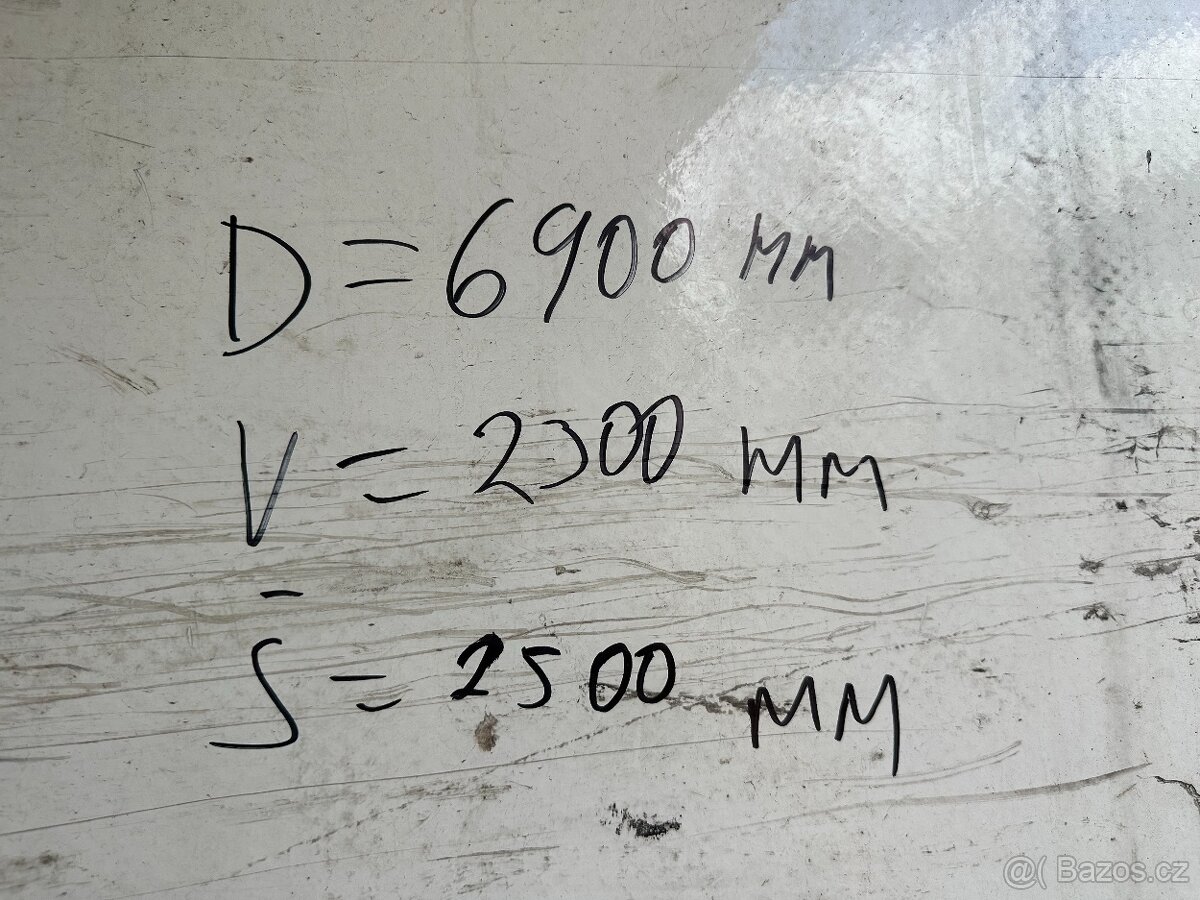 D = 6900 mm
V = 2300 mm
-
S = 2500 mm
@( Bazos.cz